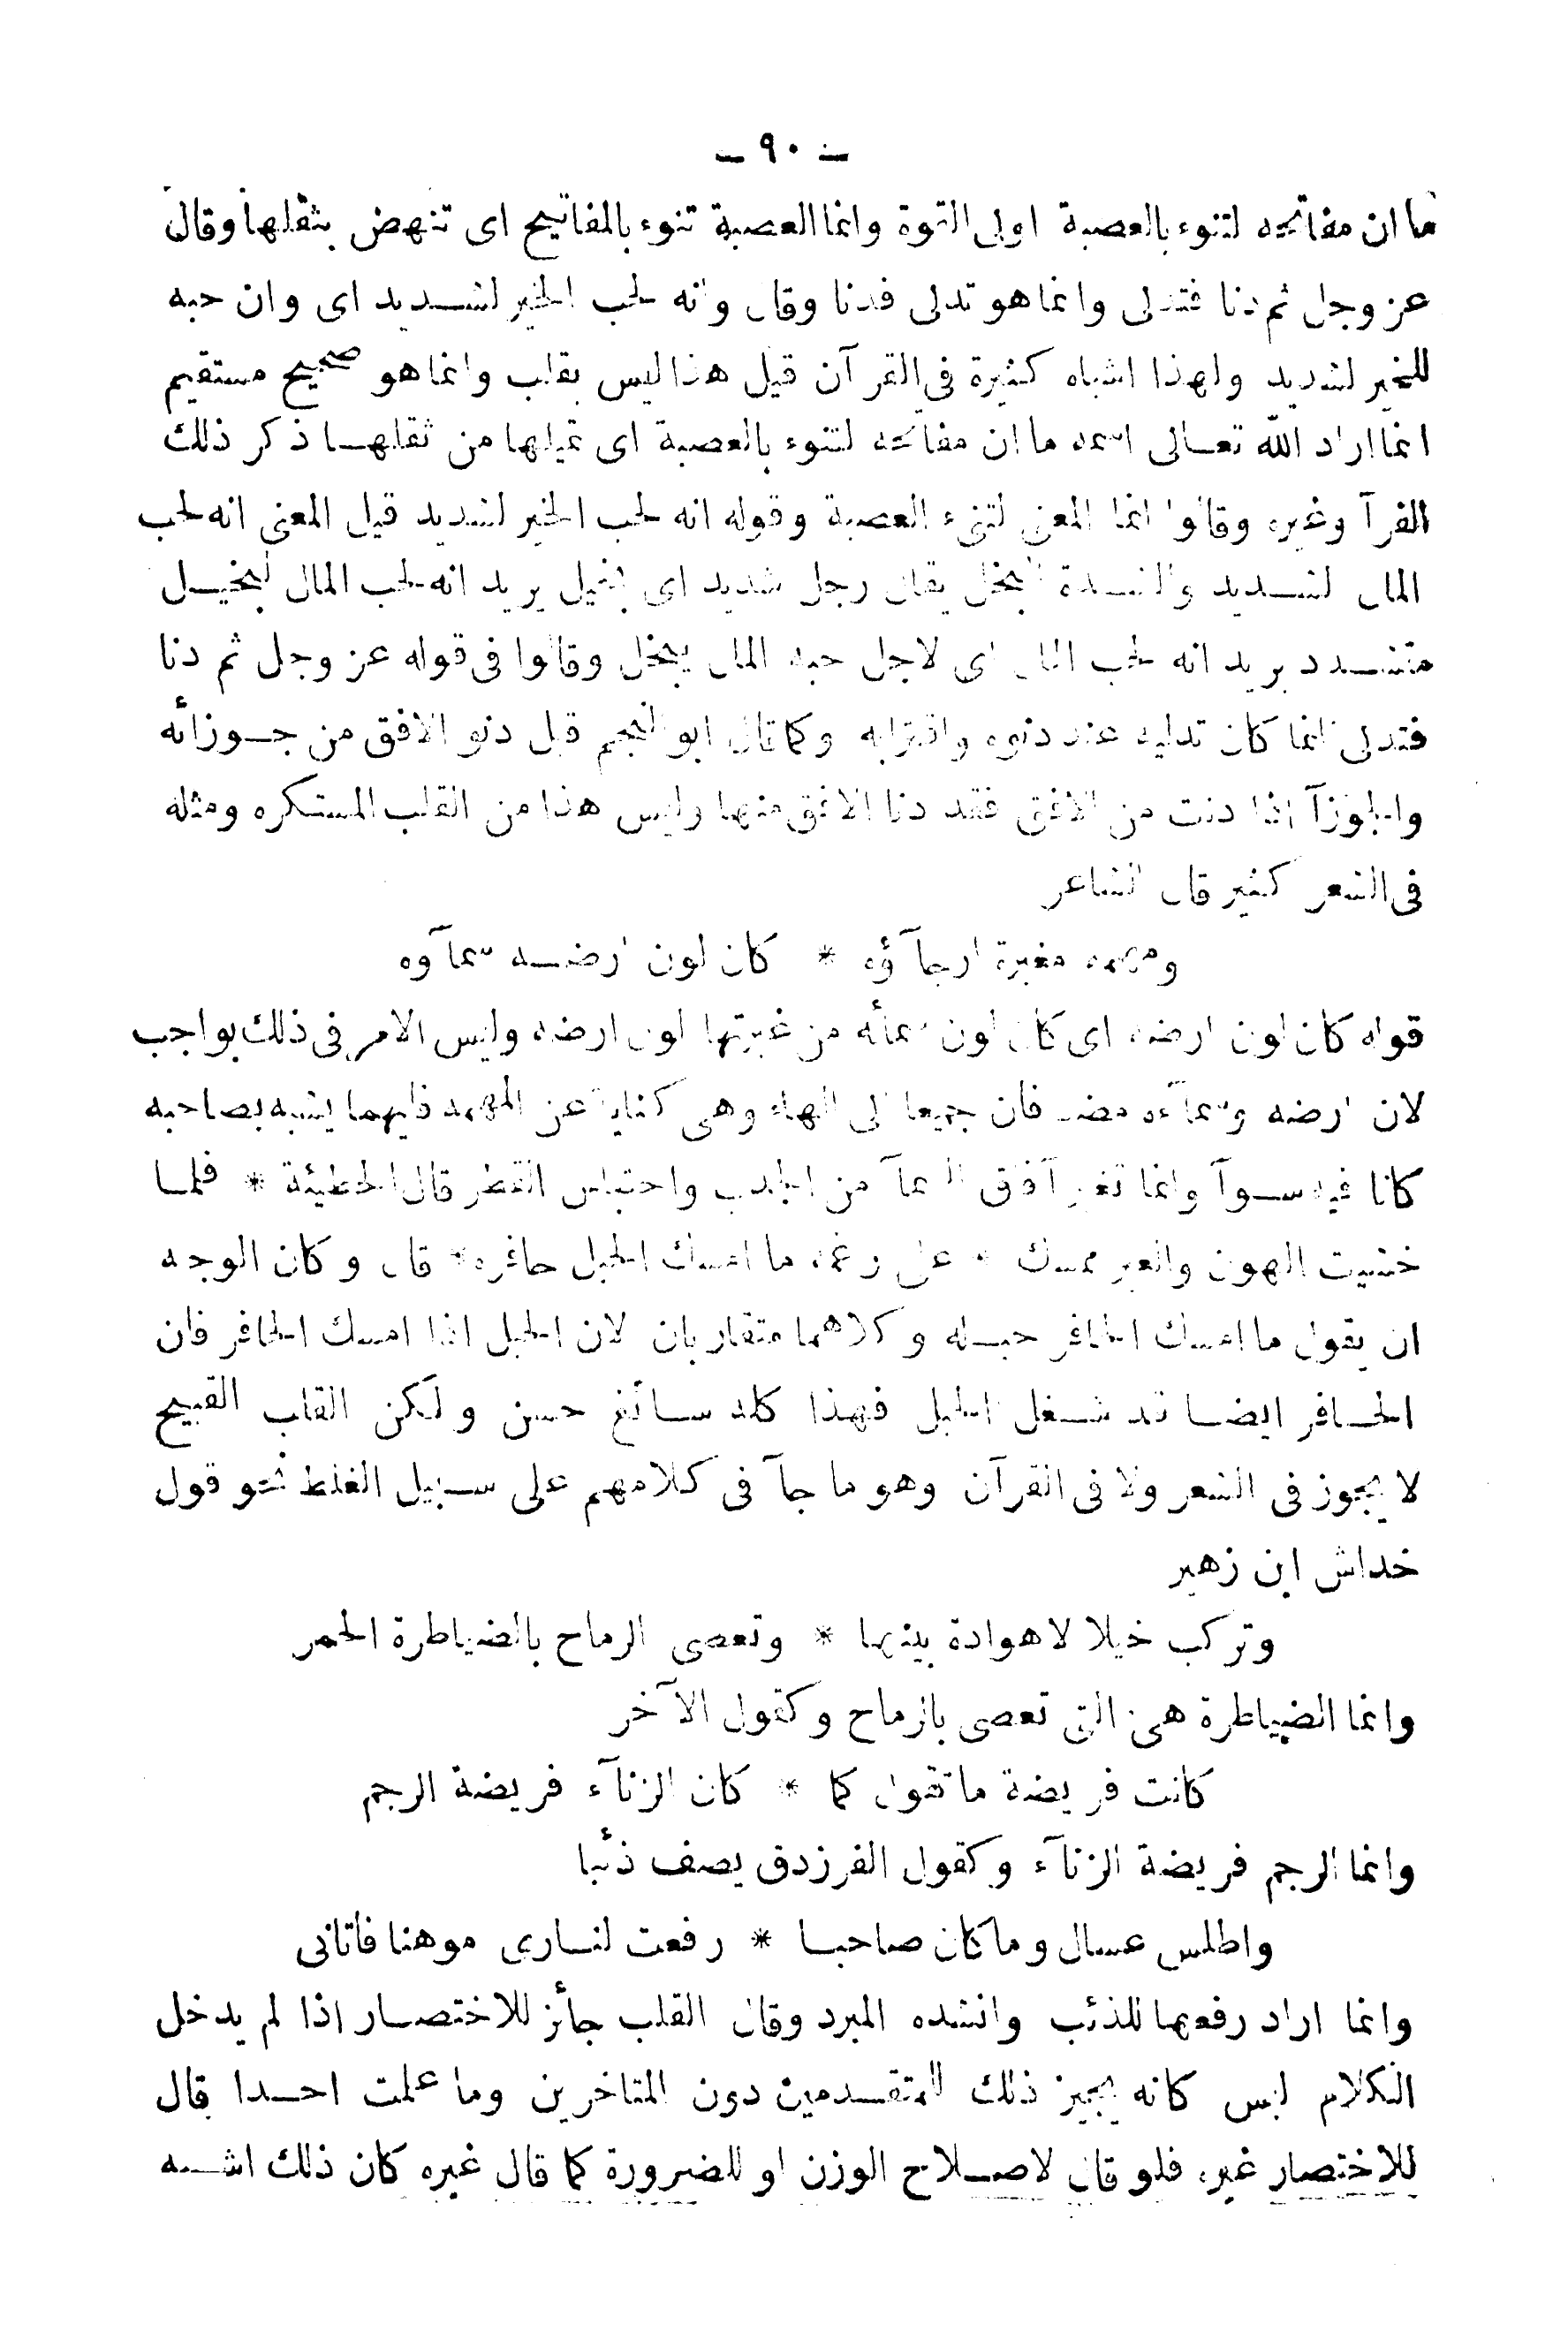 – ٩٠ –
ما ان مفاتحه لتنوء بالعصبة اولى القوة وانما العصبة تنوء بالمفاتيح اى تنهض بثقلها وقال
عز وجل ثم دنا فتدلى وانما هو تدلى فدنا وقال وانه لحب الخير لشــديد اى وان حبه
للخير لشديد ولهذا اشباه كثيرة فى القرآن قيل هذا ليس بقلب وانما هو صحيح مستقيم
انما اراد الله تعــالى اسمه ما ان مفاتحه لتنوء بالعصبة اى تميلها من ثقلهــا ذكر ذلك
الفرآ وغيره وقالوا انما المعنى لتنىء العصبة وقوله انه لحب الخير لشديد قيل المعنى انه لحب
المال لشــديد والشــدة البخل يقال رجل شديد اى بخيل يريد انه لحب المال لبخيــل
متشــدد يريد انه لحب المال اى لاجل حبه المال يبخل وقالوا فى قوله عز وجل ثم دنا
فتدلى انما كان تدليه عند دنوه واقترابه وكما قال ابو النجم قبل دنو الافق من جــوزائه
والجوزآ اذا دنت من الافق فقد دنا الافق منها وليس هذا من القلب المستكره ومثله
فى الشعر كثير قال الشاعر
ومهمه مغبرة ارجآؤه * كان لون ارضــه سمآوه
قوله كان لون ارضه اى كان لون سمائه من غبرتها لون ارضه وليس الامر فى ذلك بواجب
لان ارضه وسمآءه مضافان جميعا الى الهاء وهى كناية عن المهمه فايهما يشبه بصاحبه
كانا فيه ســوآ وانما تغبر آفاق السمآ من الجدب واحتباس القطر قال الحطيئة * فلمــا
خشيت الهون والعير ممسك * على رغمه ما امسك الحبل حافره * قال وكان الوجه
ان يقول ما امسك الحافر حبــله وكلاهما متقاربان لان الحبل اذا امسك الحافر فان
الحــافر ايضــا قد شــغل الحبل فهذا كله ســائغ حسن ولكن القلب القبيح
لا يجوز فى الشعر ولا فى القرآن وهو ما جآ فى كلامهم على ســبيل الغلط نحو قول
خداش ابن زهير
وتركب خيلا لا هوادة بينها * وتعصى الرماح بالضياطرة الحمر
وانما الضياطرة هى التى تعصى بالرماح وكقول الآخر
كانت فريضة ما تقول كما * كان الزنآء فريضة الرجم
وانما الرجم فريضة الزنآء وكقول الفرزدق يصف ذئبا
واطلس عسال وما كان صاحبــا * رفعت لنــارى موهنا فاتانى
وانما اراد رفعها للذئب وانشده المبرد وقال القلب جائز للاختصــار اذا لم يدخل
الكلام لبس كانه يجيز ذلك للمتقــدمين دون المتاخرين وما علمت احــدا قال
للاختصار غيره فلو قال لاصــلاح الوزن او للضرورة كما قال غيره كان ذلك اشــبه